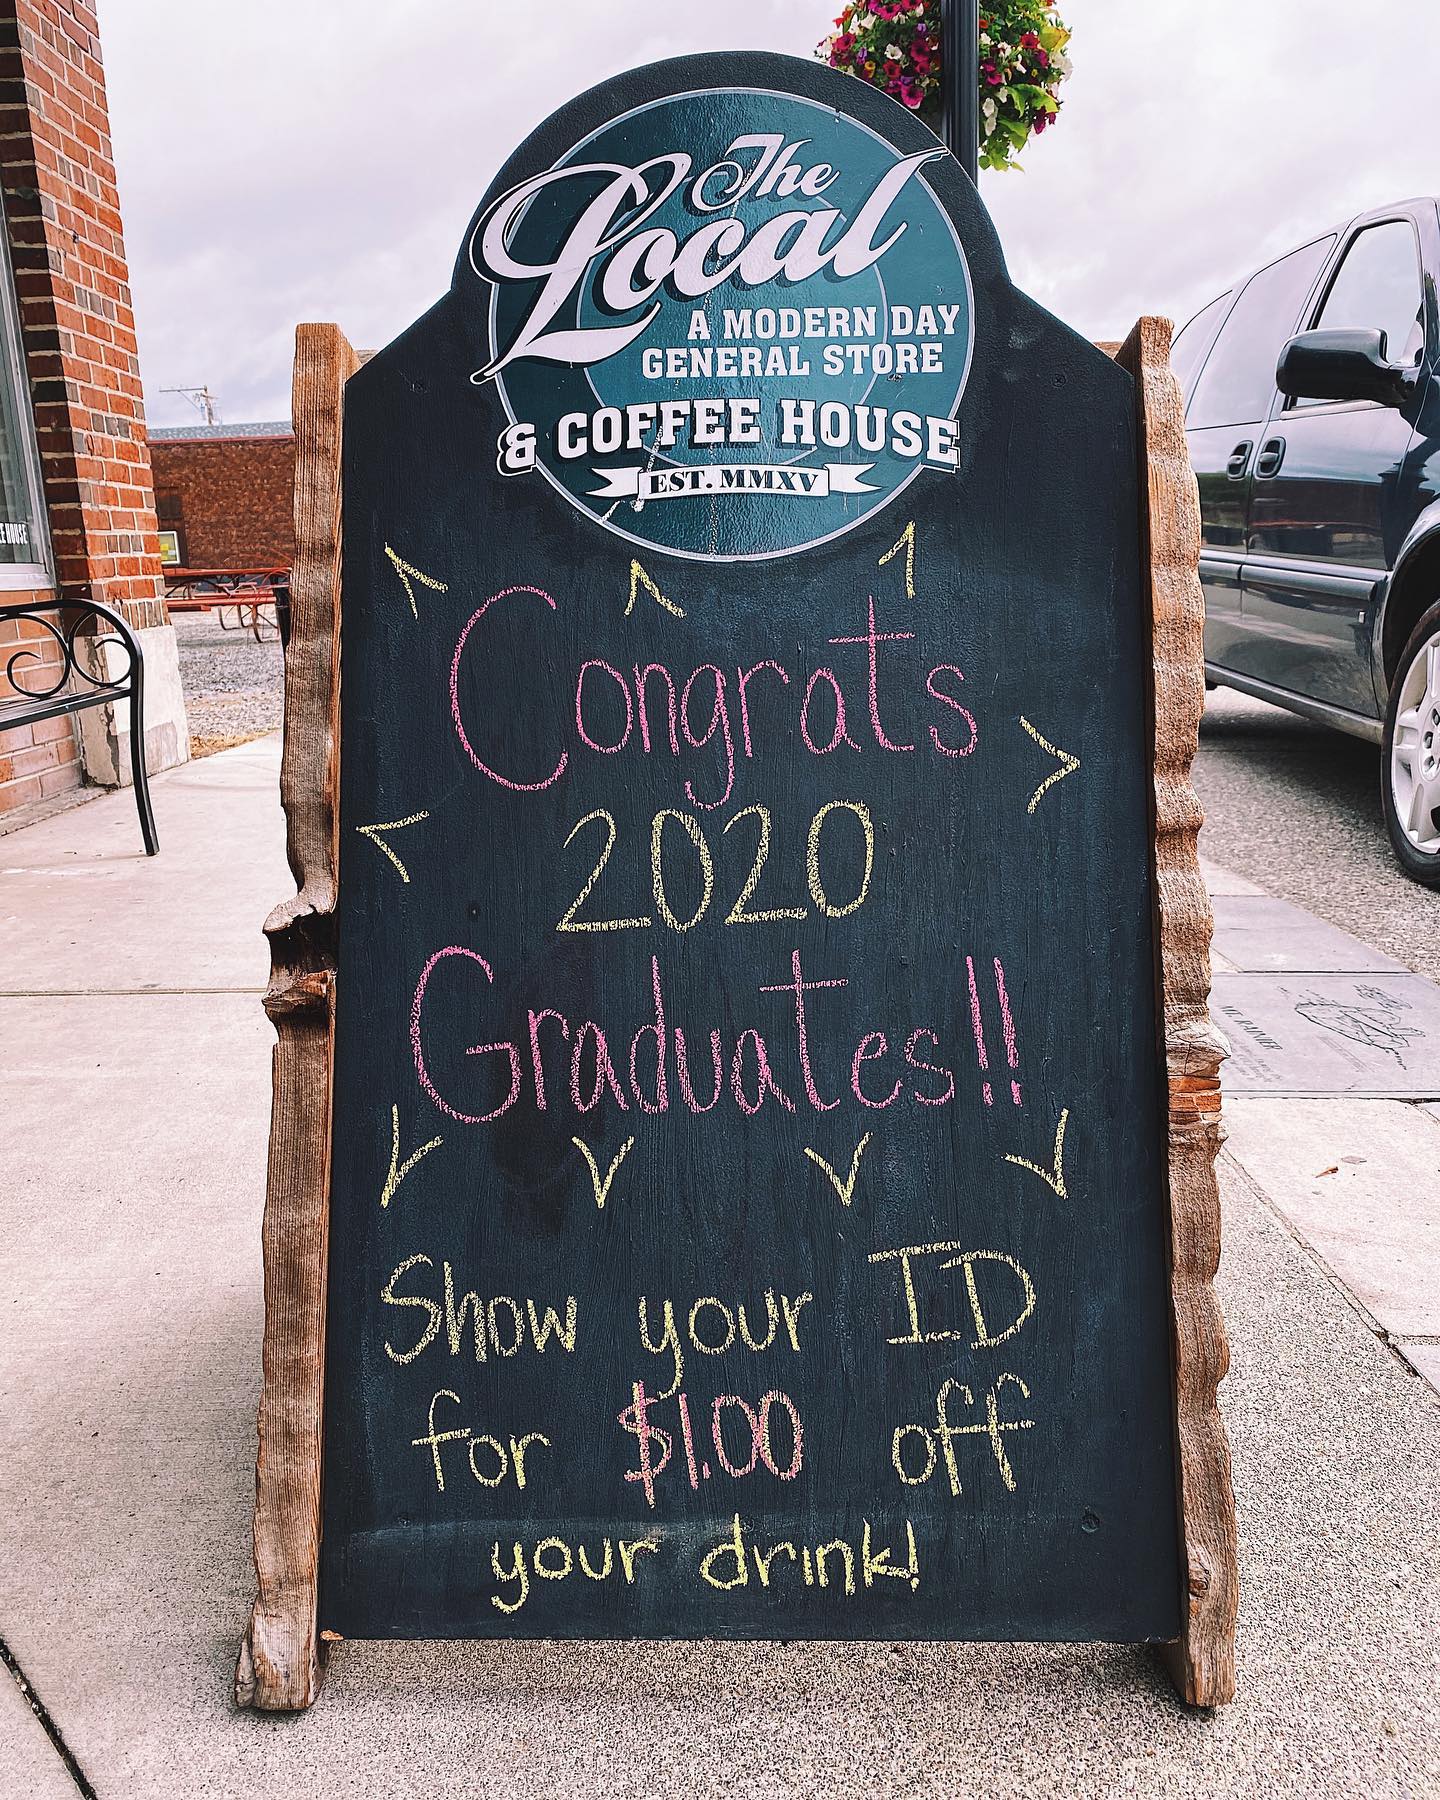 The
Local
A MODERN DAY
GENERAL STORE
& COFFEE HOUSE
EST. MMXV
Congrats
2020
Graduates!!
Show your ID
for $1.00 off
your drink!
HOUSE